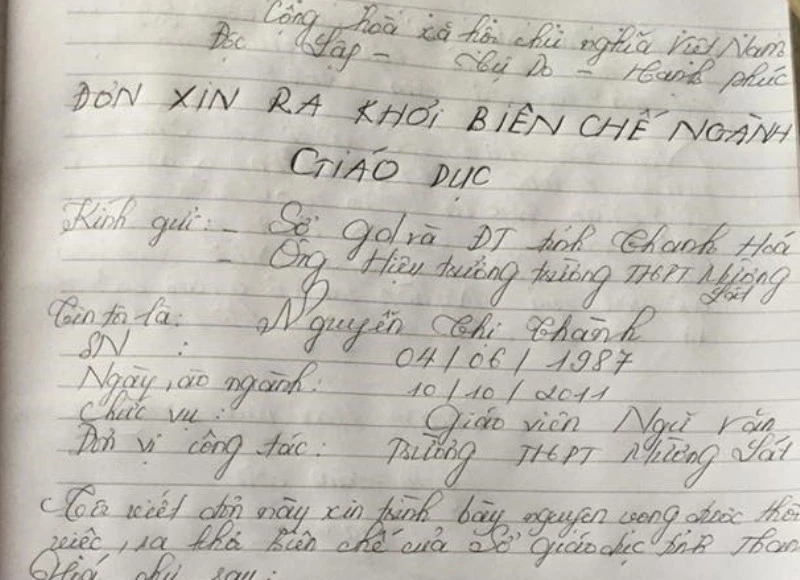 Cộng hoà xã hội chủ nghĩa Việt Nam
Độc lập - Tự Do - Hạnh phúc
ĐƠN XIN RA KHỎI BIÊN CHẾ NGÀNH
GIÁO DỤC
Kính gửi: - Sở gd và ĐT tỉnh Thanh Hoá
- Ông Hiệu trưởng trường THPT Mường
Lát
Tên tôi là: Nguyễn Thị Thành
SN : 04/06/1987
Ngày vào ngành: 10/10/2011
Chức vụ : Giáo viên Ngữ văn
Đơn vị công tác: Trường THPT Mường Lát
Tôi viết đơn này xin trình bày nguyện vọng được thôi
việc, ra khỏi biên chế của Sở giáo dục tỉnh Thanh
Hoá như sau: